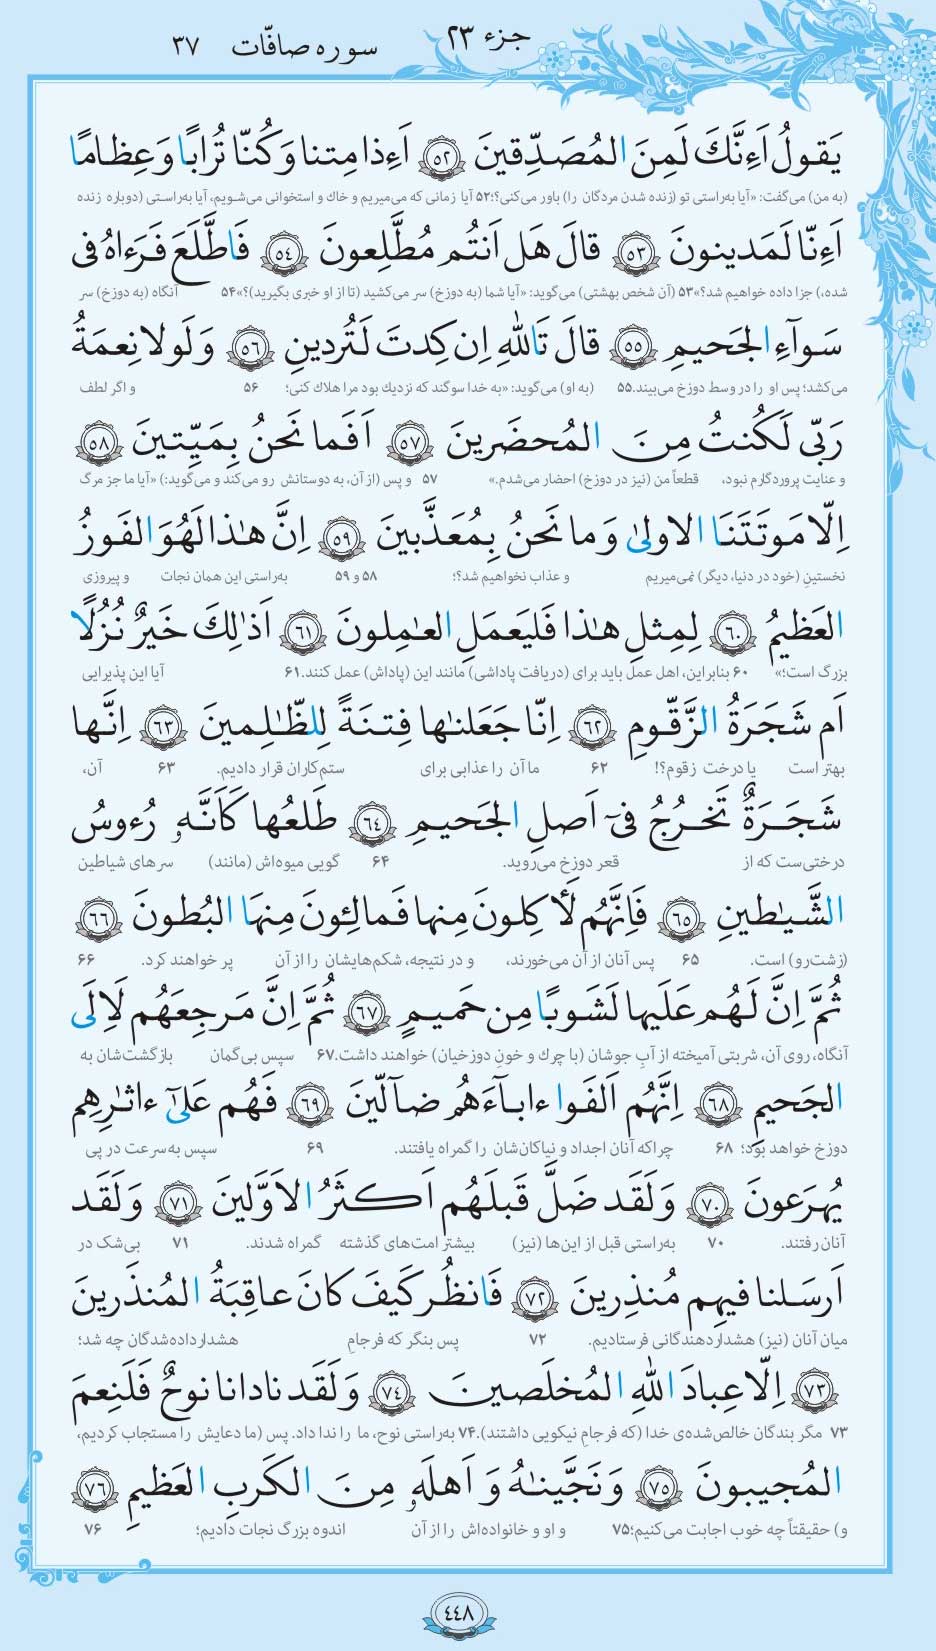 جزء ۲۳
سوره صافّات ۳۷
يَقولُ اَءِنَّكَ لَمِنَ المُصَدِّقينَ ﴿٥٢﴾ اَءِذا مِتنا وَكُنّا تُرابًا وَعِظامًا
(به من) می‌گفت: «آیا به‌راستی تو (زنده شدن مردگان را) باور می‌کنی؟!۵۲ آیا زمانی که می‌میریم و خاك و استخوانی می‌شویم، آیا به‌راستی (دوباره زنده
اَءِنّا لَمَدينونَ ﴿٥٣﴾ قالَ هَل اَنتُم مُطَّلِعونَ ﴿٥٤﴾ فَاطَّلَعَ فَرَءاهُ فى
شده،) جزا داده خواهیم شد؟»۵۳ (آن شخص بهشتی) می‌گوید: «آیا شما (به دوزخ) سر می‌کشید (تا از او خبری بگیرید)؟»۵۴ آنگاه (به دوزخ) سر
سَوآءِ الجَحيمِ ﴿٥٥﴾ قالَ تَاللّٰهِ اِن كِدتَ لَتُردينِ ﴿٥٦﴾ وَلَولا نِعمَةُ
می‌کشد؛ پس او را در وسط دوزخ می‌بیند.۵۵ (به او) می‌گوید: «به خدا سوگند که نزدیك بود مرا هلاك کنی؛ ۵۶ و اگر لطف
رَبّى لَكُنتُ مِنَ المُحضَرينَ ﴿٥٧﴾ اَفَما نَحنُ بِمَيِّتينَ ﴿٥٨﴾
و عنایت پروردگارم نبود، قطعاً من (نیز در دوزخ) احضار می‌شدم.» ۵۷ و پس (از آن، به دوستانش رو می‌کند و می‌گوید:) «آیا ما جز مرگ
اِلّا مَوتَتَنَا الاولىٰ وَما نَحنُ بِمُعَذَّبينَ ﴿٥٩﴾ اِنَّ هٰذا لَهُوَ الفَوزُ
نخستینِ (خود در دنیا، دیگر) نمی‌میریم و عذاب نخواهیم شد؟! ۵۸ و ۵۹ به‌راستی این همان نجات و پیروزی
العَظيمُ ﴿٦٠﴾ لِمِثلِ هٰذا فَليَعمَلِ العٰمِلونَ ﴿٦١﴾ اَذٰلِكَ خَيرٌ نُزُلًا
بزرگ است؛» ۶۰ بنابراین، اهل عمل باید برای (دریافت پاداشی) مانند این (پاداش) عمل کنند.۶۱ آیا این پذیرایی
اَم شَجَرَةُ الزَّقّومِ ﴿٦٢﴾ اِنّا جَعَلنٰها فِتنَةً لِلظّٰلِمينَ ﴿٦٣﴾ اِنَّها
بهتر است یا درخت زقوم؟! ۶۲ ما آن را عذابی برای ستم‌کاران قرار دادیم. ۶۳ آن،
شَجَرَةٌ تَخرُجُ فىٓ اَصلِ الجَحيمِ ﴿٦٤﴾ طَلعُها كَاَنَّهُ رُءوسُ
درختی‌ست که از قعر دوزخ می‌روید. ۶۴ گویی میوه‌اش (مانند) سرهای شیاطین
الشَّيٰطينِ ﴿٦٥﴾ فَاِنَّهُم لَأٰكِلونَ مِنها فَمالِئونَ مِنهَا البُطونَ ﴿٦٦﴾
(زشت‌رو) است. ۶۵ پس آنان از آن می‌خورند، و در نتیجه، شکم‌هایشان را از آن پر خواهند کرد. ۶۶
ثُمَّ اِنَّ لَهُم عَلَيها لَشَوبًا مِن حَميمٍ ﴿٦٧﴾ ثُمَّ اِنَّ مَرجِعَهُم لَاِلَى
آنگاه، روی آن، شربتی آمیخته از آبِ جوشان (با چرك و خونِ دوزخیان) خواهند داشت.۶۷ سپس بی‌گمان بازگشت‌شان به
الجَحيمِ ﴿٦٨﴾ اِنَّهُم اَلفَوا ءابآءَهُم ضآلّينَ ﴿٦٩﴾ فَهُم عَلىٰٓ ءاثٰرِهِم
دوزخ خواهد بود؛ ۶۸ چراکه آنان اجداد و نیاکان‌شان را گمراه یافتند. ۶۹ سپس به‌سرعت در پی
يُهرَعونَ ﴿٧٠﴾ وَلَقَد ضَلَّ قَبلَهُم اَكثَرُ الاَوَّلينَ ﴿٧١﴾ وَلَقَد
آنان رفتند. ۷۰ به‌راستی قبل از این‌ها (نیز) بیشتر امت‌های گذشته گمراه شدند. ۷۱ بی‌شک در
اَرسَلنا فيهِم مُنذِرينَ ﴿٧٢﴾ فَانظُر كَيفَ كانَ عاقِبَةُ المُنذَرينَ
میان آنان (نیز) هشداردهندگانی فرستادیم. ۷۲ پس بنگر که فرجامِ هشدارداده‌شدگان چه شد؛
﴿٧٣﴾ اِلّا عِبادَ اللّٰهِ المُخلَصينَ ﴿٧٤﴾ وَلَقَد نادانا نوحٌ فَلَنِعمَ
۷۳ مگر بندگان خالص‌شده‌ی خدا (که فرجامِ نیکویی داشتند).۷۴ به‌راستی نوح، ما را ندا داد. پس (ما دعایش را مستجاب کردیم،
المُجيبونَ ﴿٧٥﴾ وَنَجَّينٰهُ وَاَهلَهُ مِنَ الكَربِ العَظيمِ ﴿٧٦﴾
و) حقیقتاً چه خوب اجابت می‌کنیم؛۷۵ و او و خانواده‌اش را از آن اندوه بزرگ نجات دادیم؛ ۷۶
٤٤٨